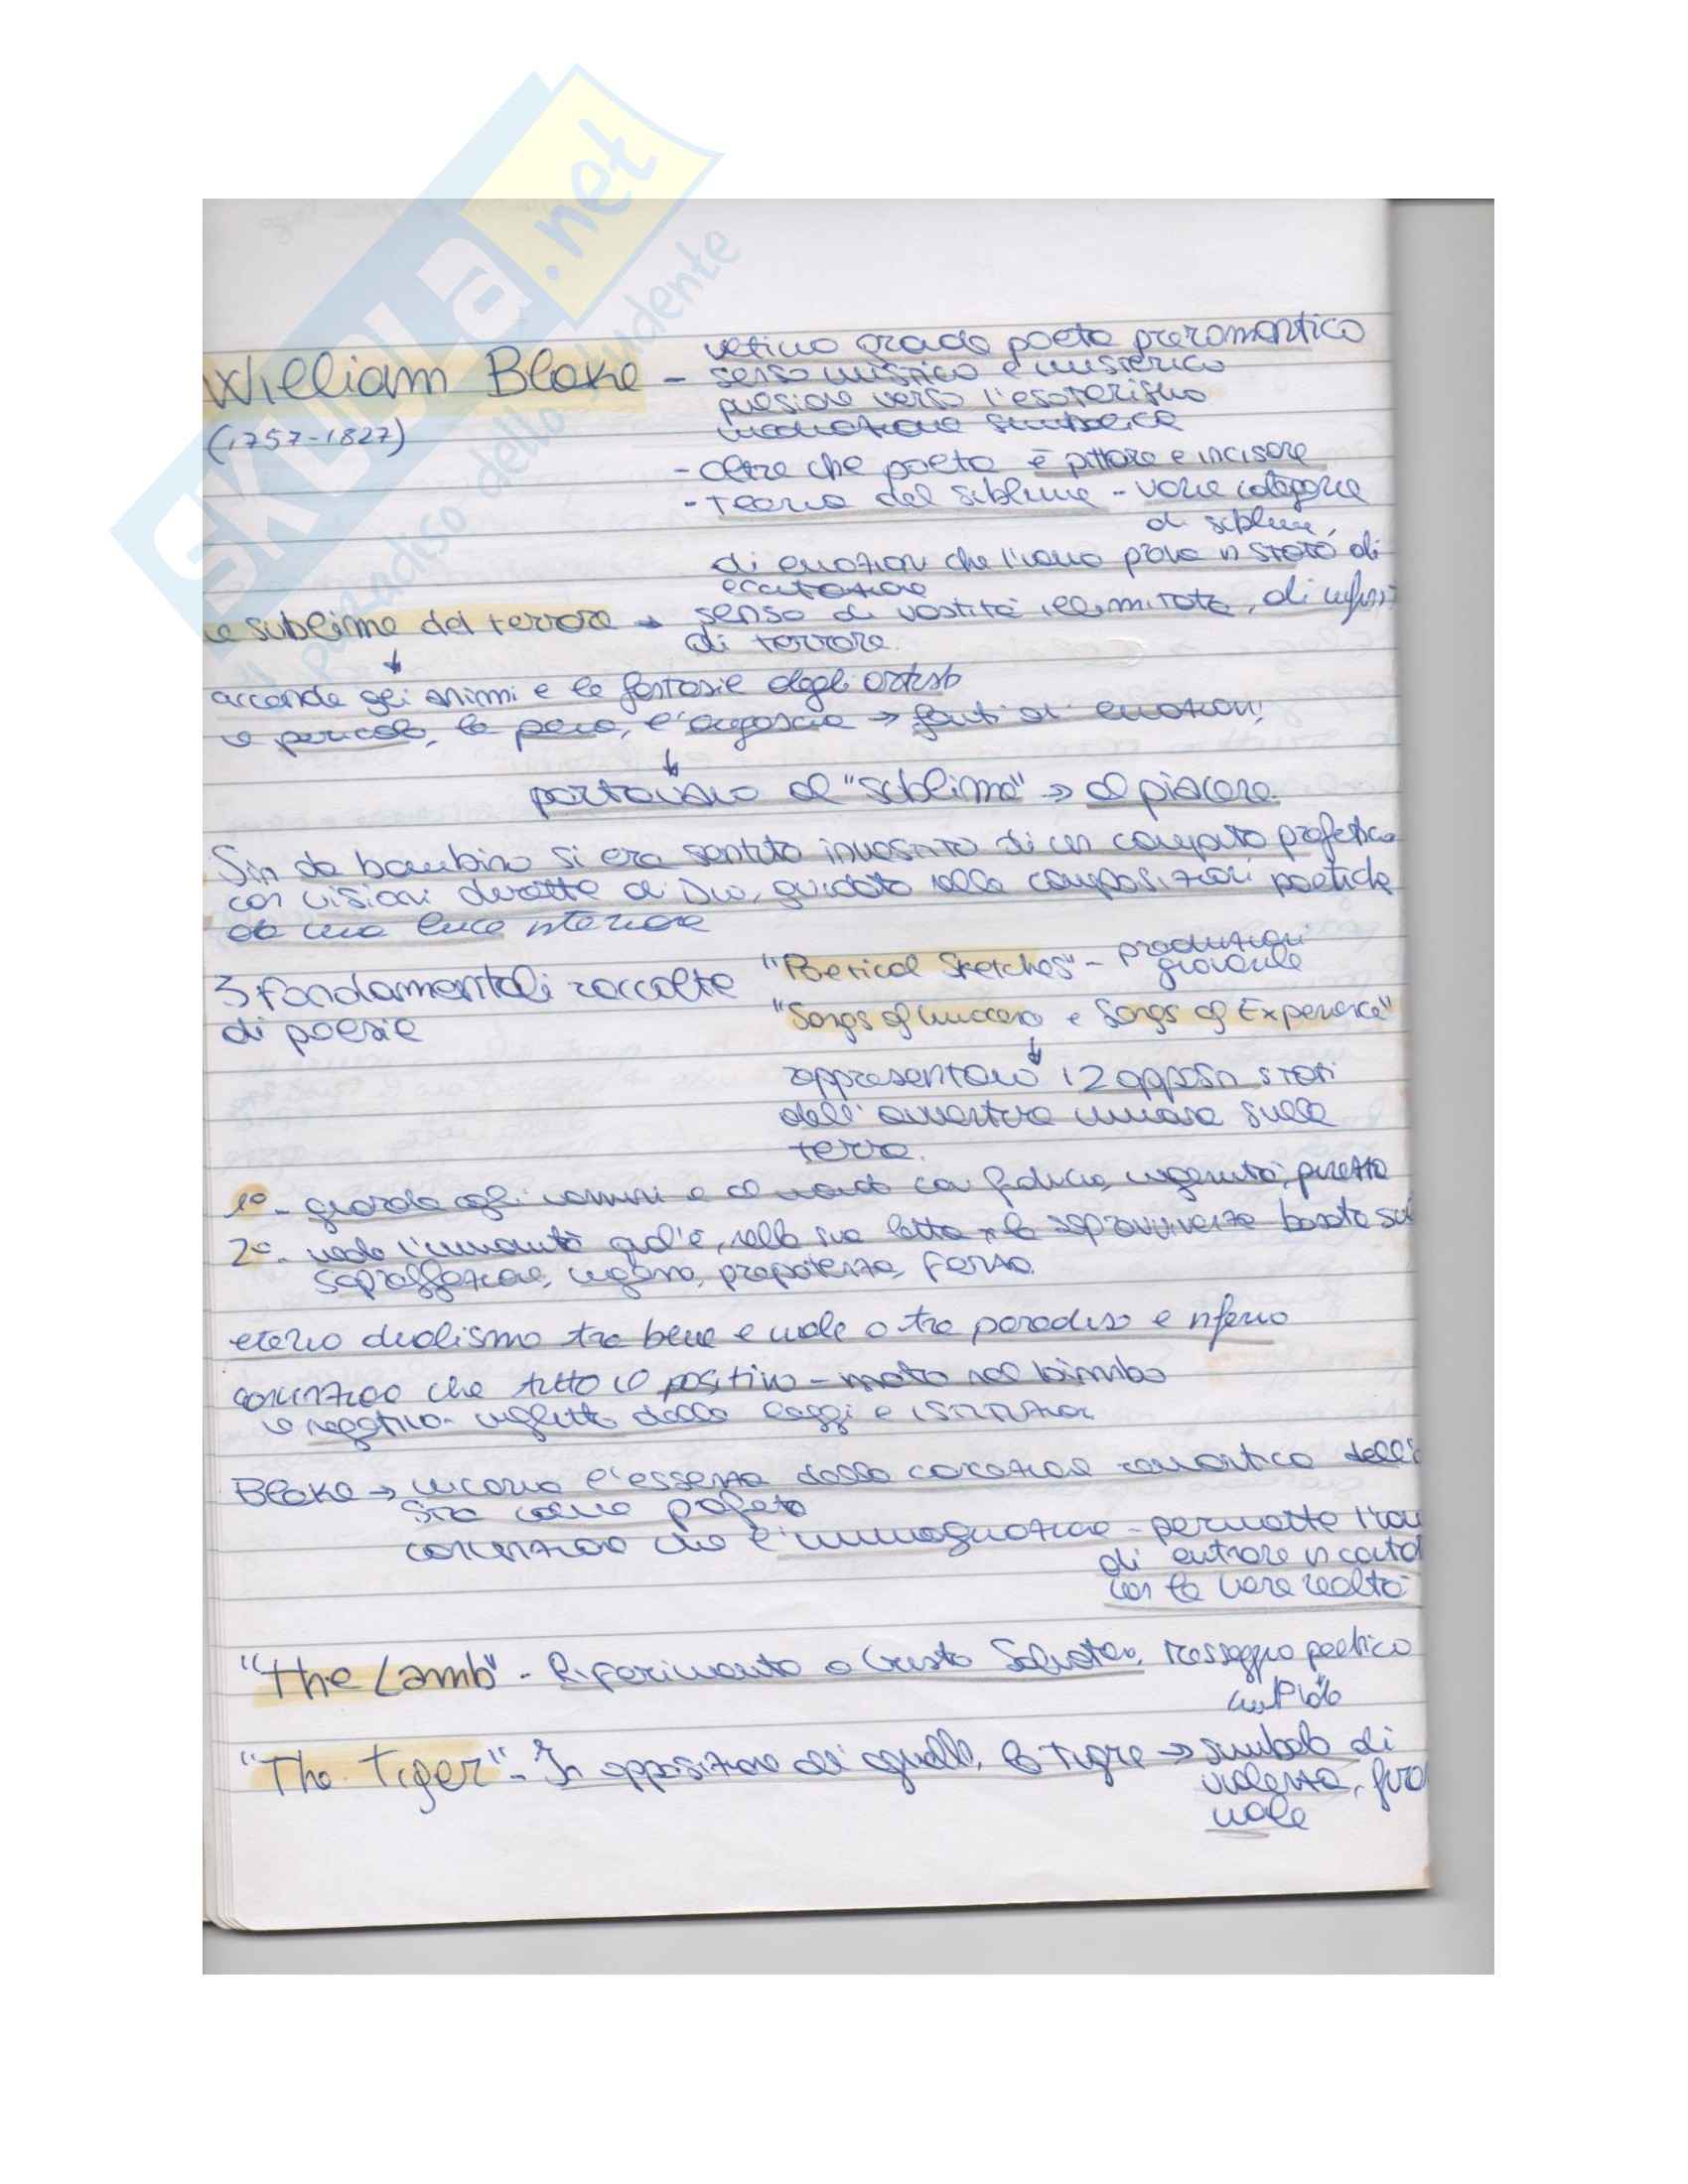 SKUOLA.net
il paradiso dello studente
William Blake - ultimo grande poeta preromantico
(1757-1827)
senso mistico e misterico
passione verso l'esoterismo
simbolica
- oltre che poeta è pittore e incisore
- teoria del sublime - varie categorie
di sublime,
di emozioni che l'uomo prova in stato di
eccitazione
il sublime del terrore → senso di vastità illimitata, di
di terrore.
↓
accende gli animi e le fantasie degli artisti
il pericolo, la pena, l'angoscia → fonti di emozioni
↓
portavano al "sublime" → al piacere.
Sin da bambino si era sentito investito di un compito profetico
con visioni dirette di Dio, guidato nelle composizioni poetiche
da una luce interiore
3 fondamentali raccolte
di poesie
"Poetical Sketches" - produzioni
giovanile
"Songs of Innocence e Songs of Experience"
↓
rappresentano i 2 opposti stati
dell'avventura umana sulla
terra.
1° - guarda agli uomini e al mondo con fiducia, ingenuità, purezza
2° - vede l'umanità qual'è, nella sua lotta x la sopravvivenza basata su
sopraffazione, inganno, prepotenza, forza.
eterno dualismo tra bene e male o tra paradiso e inferno
convinzione che tutto il positivo - nel bimbo
il negativo - dalle leggi e istituzioni
Blake → incarna l'essenza della concezione romantica dell'
come profeta
convinzione che l'immaginazione - permette
di entrare in
con la vera realtà
"The Lamb" - Riferimento a Cristo Salvatore, messaggio poetico
"The Tiger" - In opposizione all'agnello, la tigre → simbolo di
violenza,
male